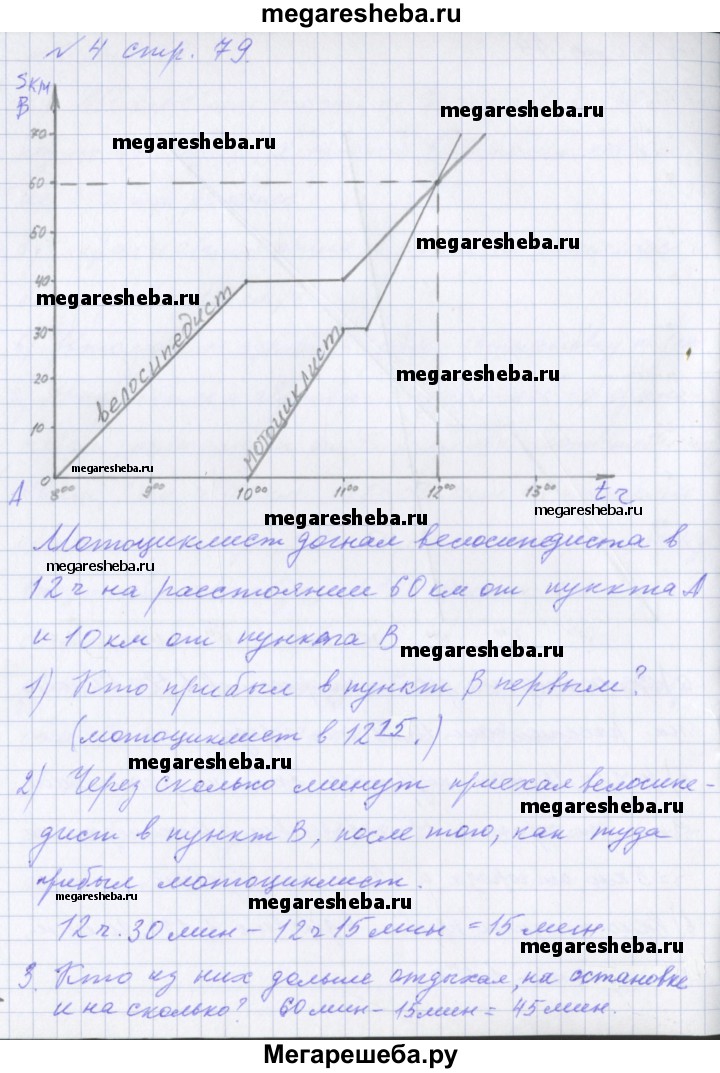 megaresheba.ru
№ 4 стр. 79.
S км
В
megaresheba.ru
70
megaresheba.ru
60
50
megaresheba.ru
40
megaresheba.ru
30
велосипедист
мотоциклист
20
megaresheba.ru
10
megaresheba.ru
0
А
8⁰⁰ 9⁰⁰ 10⁰⁰ 11⁰⁰ 12⁰⁰ 13⁰⁰ t ч
megaresheba.ru
megaresheba.ru
Мотоциклист догнал велосипедиста в
megaresheba.ru
12 ч на расстоянии 60 км от пункта А
и 10 км от пункта В
megaresheba.ru
1) Кто прибыл в пункт В первым?
(мотоциклист в 12 15.)
megaresheba.ru
2) Через сколько минут приехал велосипе-
megaresheba.ru
дист в пункт В, после того, как туда
прибыл мотоциклист.
megaresheba.ru
megaresheba.ru
12 ч. 30 мин - 12 ч 15 мин = 15 мин
megaresheba.ru
3. Кто из них дольше отдыхал, на остановке
и на сколько? 60 мин - 15 мин = 45 мин.
Мегарешеба.ру